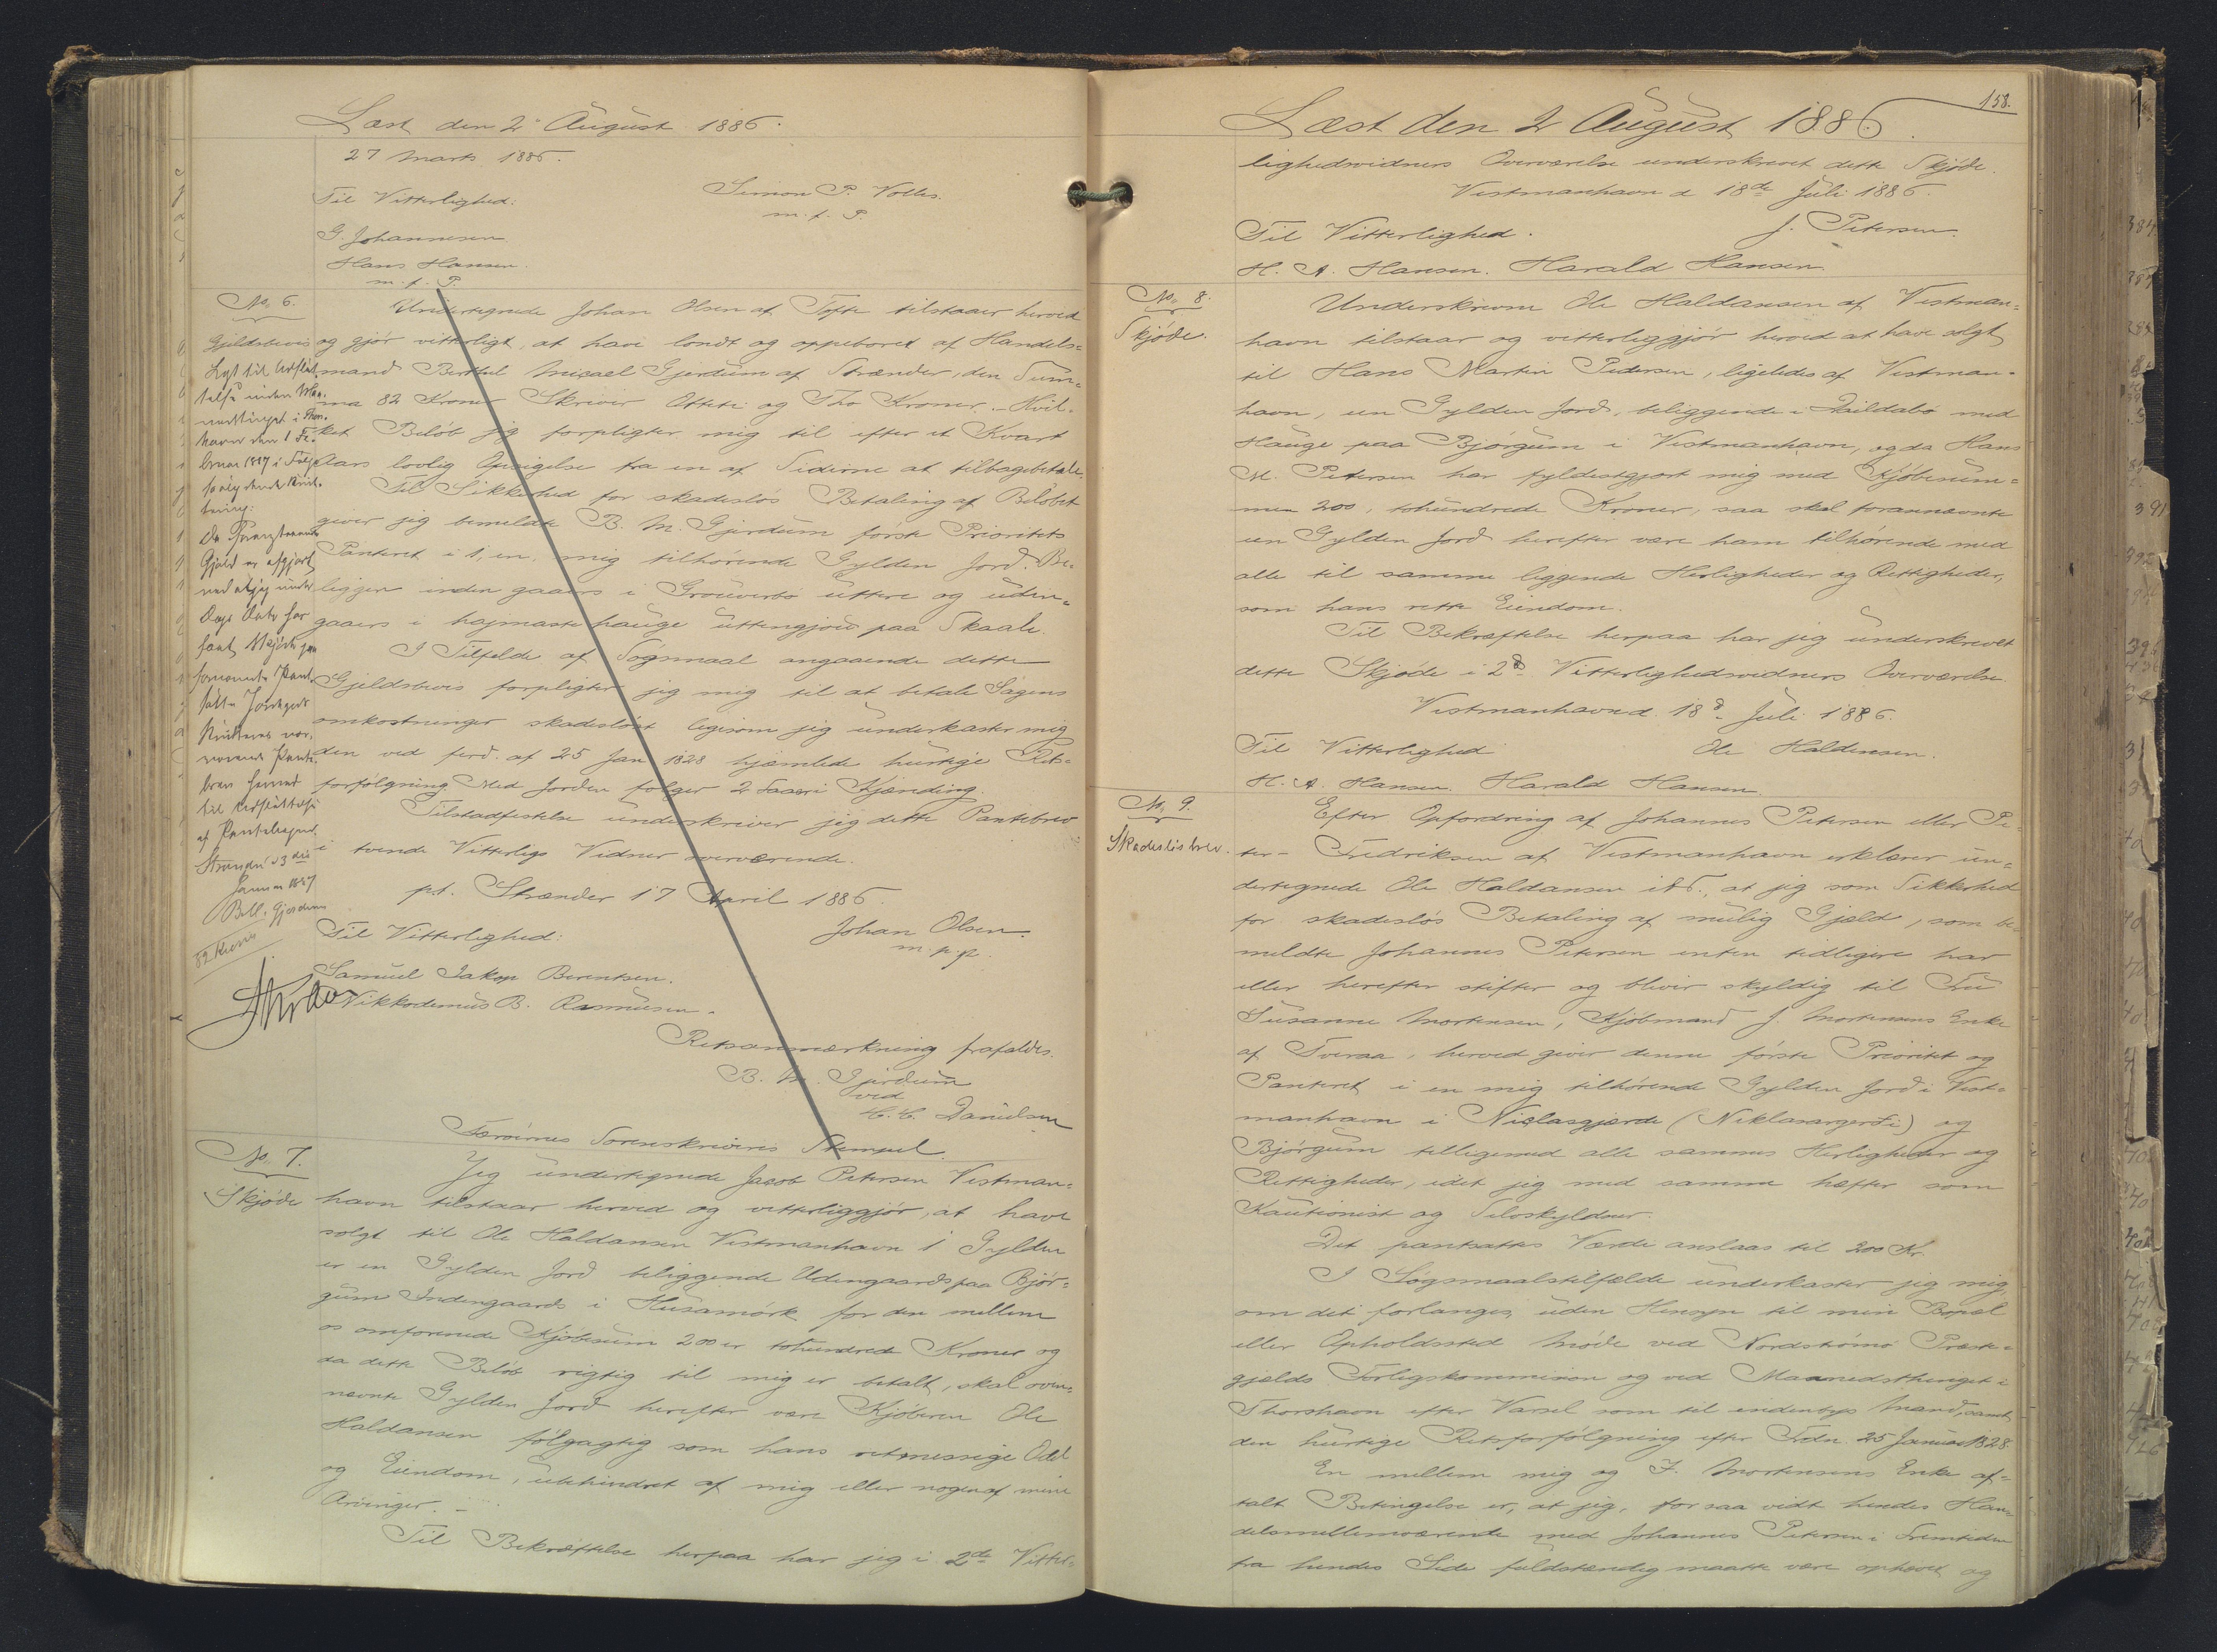 Læst den 2 August 1886.
27 Marts 1886.
Til Vitterlighed:
Simon P. Volles.
m. f. P.
G. Johannesen
Hans Hansen.
m. f. P.
No. 6.
Gjeldsbevis
Undertegnede Johan Olsen af Tofte tilstaaer herved
og gjør vitterligt, at have londt og oppeboret af Handels-
mand Berthel Micael Gjerdum af Strænder, den Sum-
ma 82 Kroner Skriver Otteti og Tho Kroner. Hvil-
ket Beløb jg forpligter mig til efter et Kvart
Aars lovlig Opsigelse fra en af Siderne at tilbagebetale.
Til Sikkerhed for skadesløs Betaling af Beløbet
giver jig bemeldte B. M. Gjerdum første Prioritets
Panteret i 1, en, mig tilhørende Gylden Jord. Be-
ligjen inden gaaers i Grouverbø uttere og uden-
gaaers i hajmaste hauge uttengjord paa Skaale.
I Tilfelde af Søgsmaal angaaende dette
Gjeldsbevis forpligter jig mig til at betale Sagens
omkostninger skadesløst ligesom jig underkaster mig
den ved ford. af 25 Jan 1828 hjemlede hurtige Rets-
forfølgning Med Jorden følger 2 Saaeri Kjænding.
Tilstadfestelse underskriver jig dette Pantebrev
i tvende Vitterligs Vidner overværende.
p.t. Strænder 17 April 1886.
Til Vitterlighed:
Johan Olsen.
m. p. p.
Samuel Jakop Berentsen.
Nikkodemus B. Rasmusen.
Retsanmærkning frafaldes.
B. M. Gjerdum
ved
H. C. Danielsen
Færøernes Sorenskriveris Stempel.
Lyst til Udslet-
telse inden Maa-
nedstinget i Thors-
havn den 1 Fe-
bruar 1887 i Følge
saalydende Kvit-
tering:
Da foranstaaende
Gjæld er afgjort
ved at jeg under
Dags Dato har
faaet Skjøde paa
Strænder d 3die
Januar 1887
B. M. Gjerdum
82 Kroner
No. 7.
Skjøde
Jeg undertegnede Jacob Petersen Vestman-
havn tilstaar herved og vitterliggjør, at have
solgt til Ole Haldansen Vestmanhavn 1 Gylden
er en Gylden Jord beliggende Udengaards paa Bjør-
gum Indengaards i Husamørk for den mellem
os omforenede Kjøbesum 200 er tohundrede Kroner og
da dette Beløb rigtig til mig er betalt, skal oven-
nævnte Gylden Jord herefter være Kjøberen Ole
Haldansen følgagtig som hans retmessige Odel
og Eiendom, ubehindret af mig eller nogen af mine
Arvinger. –
Til Bekræftelse herpaa har jeg i 2de Vitter-
158.
Læst den 2 August 1886.
lighedsvidners Overværelse underskrevet dette Skjøde.
Vestmanhavn d 18de Juli 1886.
Til Vitterlighed.
J. Petersen.
H. A. Hansen. Harald Hansen
No. 8.
Skjøde.
Underskrevne Ole Haldansen af Vestman-
havn tilstaar og vitterliggjør herved at have solgt
til Hans Martin Pedersen, ligeledes af Vestman-
havn, een Gylden Jord, beliggende i Daildabø med
Hauge paa Bjørgum i Vestmanhavn, og da Hans
M. Petersen har fyldestgjort mig med Kjøbesum-
men 200, tohundrede Kroner, saa skal forannævnte
een Gylden Jord herefter være ham tilhørende med
alle til samme liggende Herligheder og Rettigheder,
som hans rette Eiendom.
Til Bekræftelse herpaa har jeg underskrevet
dette Skjøde i 2de Vitterlighedsvidners Overværelse
Vestmanhavn d. 18de Juli 1886.
Til Vitterlighed
Ole Haldensen.
H. A. Hansen. Harald Hansen.
No. 9.
Skadesløsbrev.
Efter Opfordring af Johannes Petersen eller Pe-
ter- Fredriksen af Vestmanhavn erklærer un-
dertegnede Ole Haldansen ibd., at jeg som Sikkerhed
for skadesløs Betaling af mulig Gjæld, som be-
meldte Johannes Petersen enten tidligere har
eller herefter stifter og bliver skyldig til Fru
Susanne Mortensen, Kjøbmand J. Mortensens Enke
af Tveraa, herved giver denne første Prioritet og
Panteret i en mig tilhørende Gylden Jord i Vest-
manhavn i Niclasgjærde (Niklasargerði) og
Bjørgum tilligemed alle sammes Herligheder og
Rettigheder, idet jeg med samme hæfter som
Kautionist og Selvskyldner.
Det pantsattes Værdi anslaas til 200 Kr.
I Søgsmaalstilfælde underkaster jeg mig,
om det forlanges, uden Hensyn til min Bopæl
eller Opholdssted Møde ved Nordstrømø Præste-
gjælds Forligskommission og ved Maanedsthinget i
Thorshavn efter Varsel som til indenbys Mand, samt
den hurtige Retsforfølgning efter Frdn. 25 Januar 1828.
En mellem mig og J. Mortensens Enke af-
talt Betingelse er, at jeg, for saa vidt hendes Han-
delsmellemværende med Johannes Petersen i Fremtiden
fra hendes Side fuldstændig maatte være ophævet og